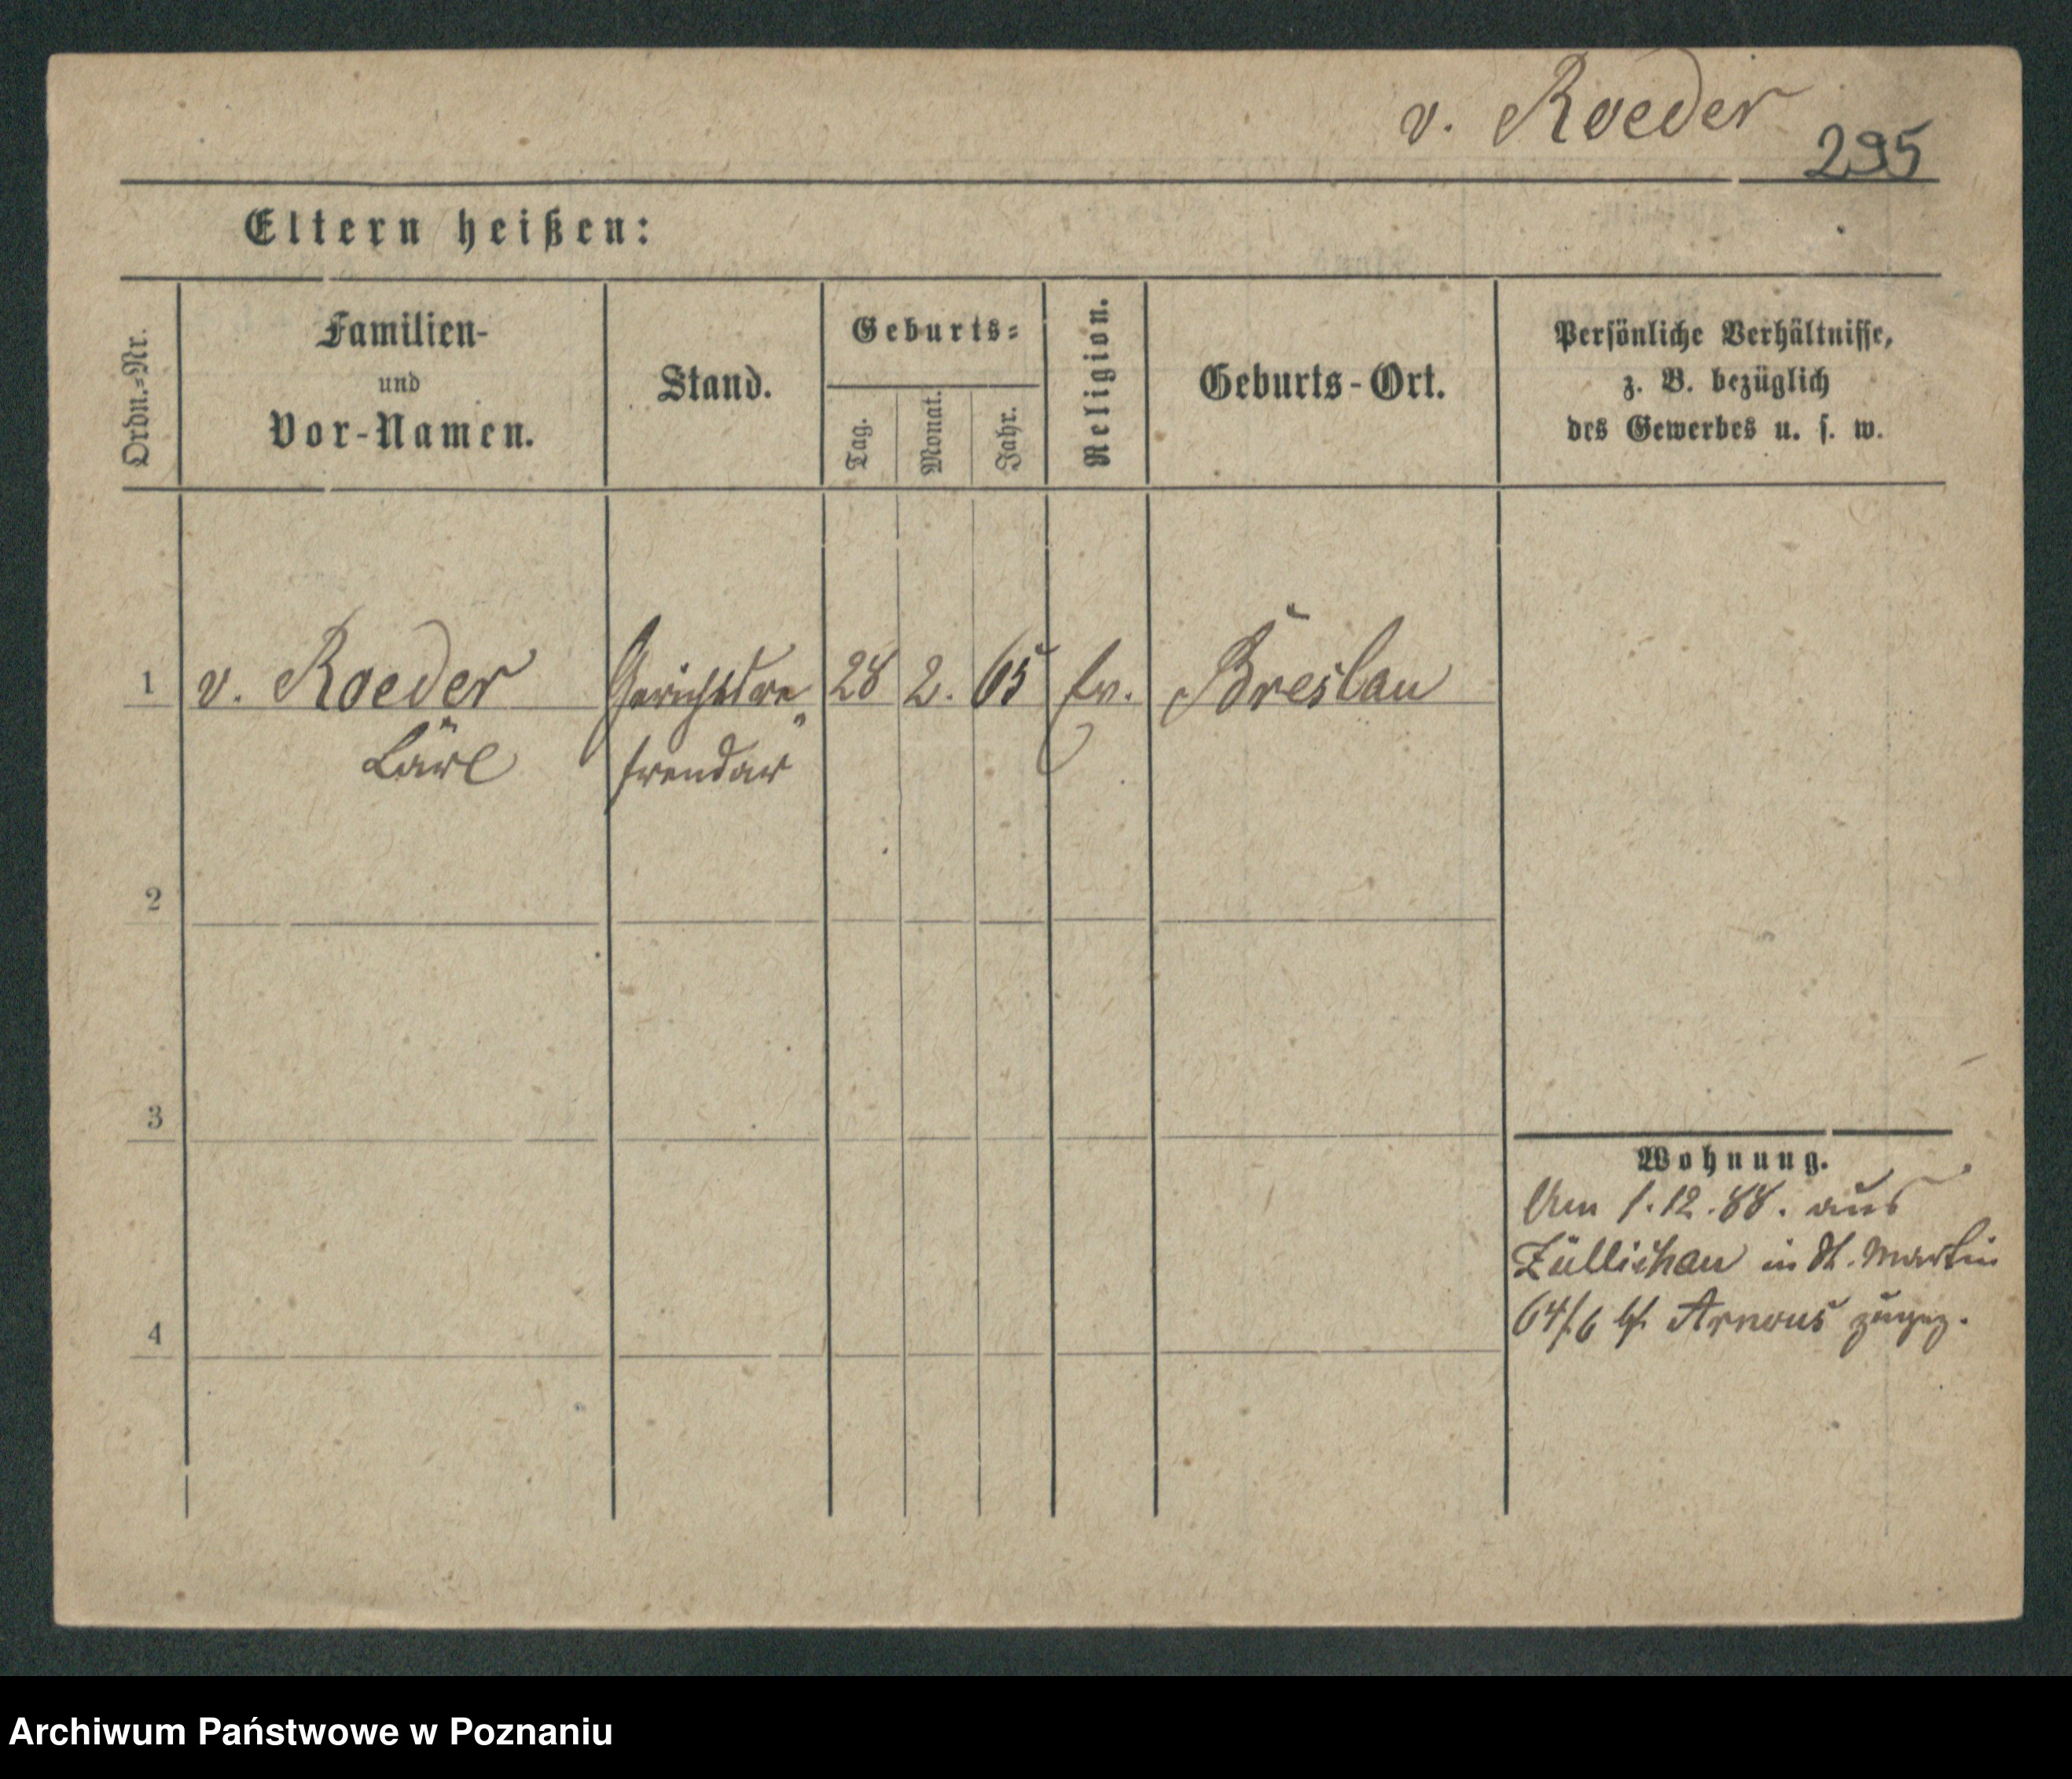 v. Roeder
295
Eltern heißen:
Ordn.-Nr.
Familien-
und
Vor-Namen.
Stand.
Geburts-
Tag.
Monat.
Jahr.
Religion.
Geburts-Ort.
Persönliche Verhältnisse,
z. B. bezüglich
des Gewerbes u. s. w.
1 v. Roeder Gerichtsre 28 2. 65 ev. Breslau
Carl ferendar
2
3
4
Wohnung.
Am 1.12.88. aus
Züllichau in St. Martin
64/6 bei Arnous zugez.
Archiwum Państwowe w Poznaniu